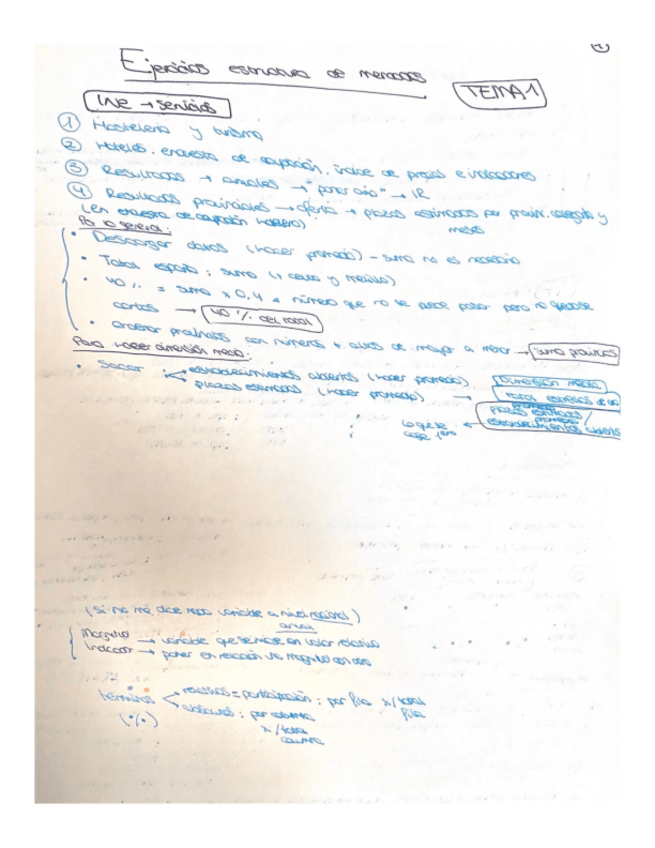 Ejercicios estructura de mercados
TEMA 1
INE → servicios
① Hostelería y turismo
② Hoteles: encuesta de ocupación, índice de precios e indicadores
③ Resultados → anuales → "poner año" → IR
④ Resultados provinciales → oferta → plazas estimadas por provin, categoría y meses
(En encuesta de ocupación hotelera)
Por lo general:
• Descargar datos (hacer promedio) – suma no es necesario
• Total España: suma (+ ceuta y melilla)
• 40% = suma x 0,4 = número que no se puede pasar pero no quedarse
cortos → 40% del total
• ordenar provincias con números + altos de mayor a menor → suma provincias
Para hacer dimensión media:
• Sacar: establecimientos abiertos (hacer promedio)
plazas estimadas (hacer promedio) →
Dimensión media
plazas estimadas /
establecimientos abiertos
(Si no me dice nada variable a nivel nacional)
anual
Magnitud → variable que se mide en valor
Indicador → poner en relación una magnitud con otra
términos relativos = participación: por fila x/total fila
(%) : por columna
x/total
columna